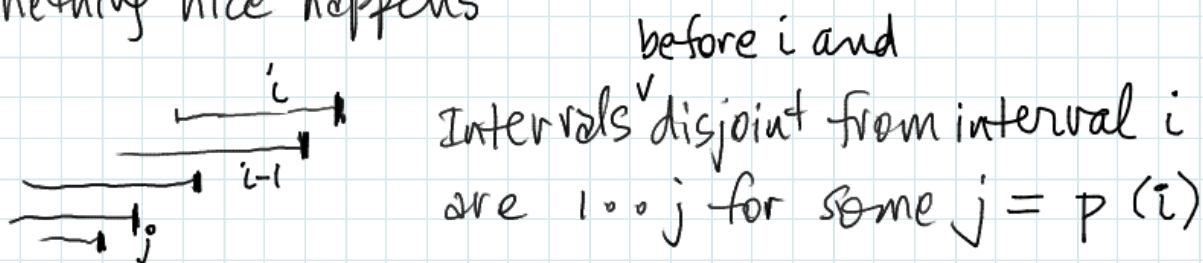 nice happens
before i and
i
Intervals ˅ disjoint from interval i
i-1
are 1..j for some j = p (i)
j